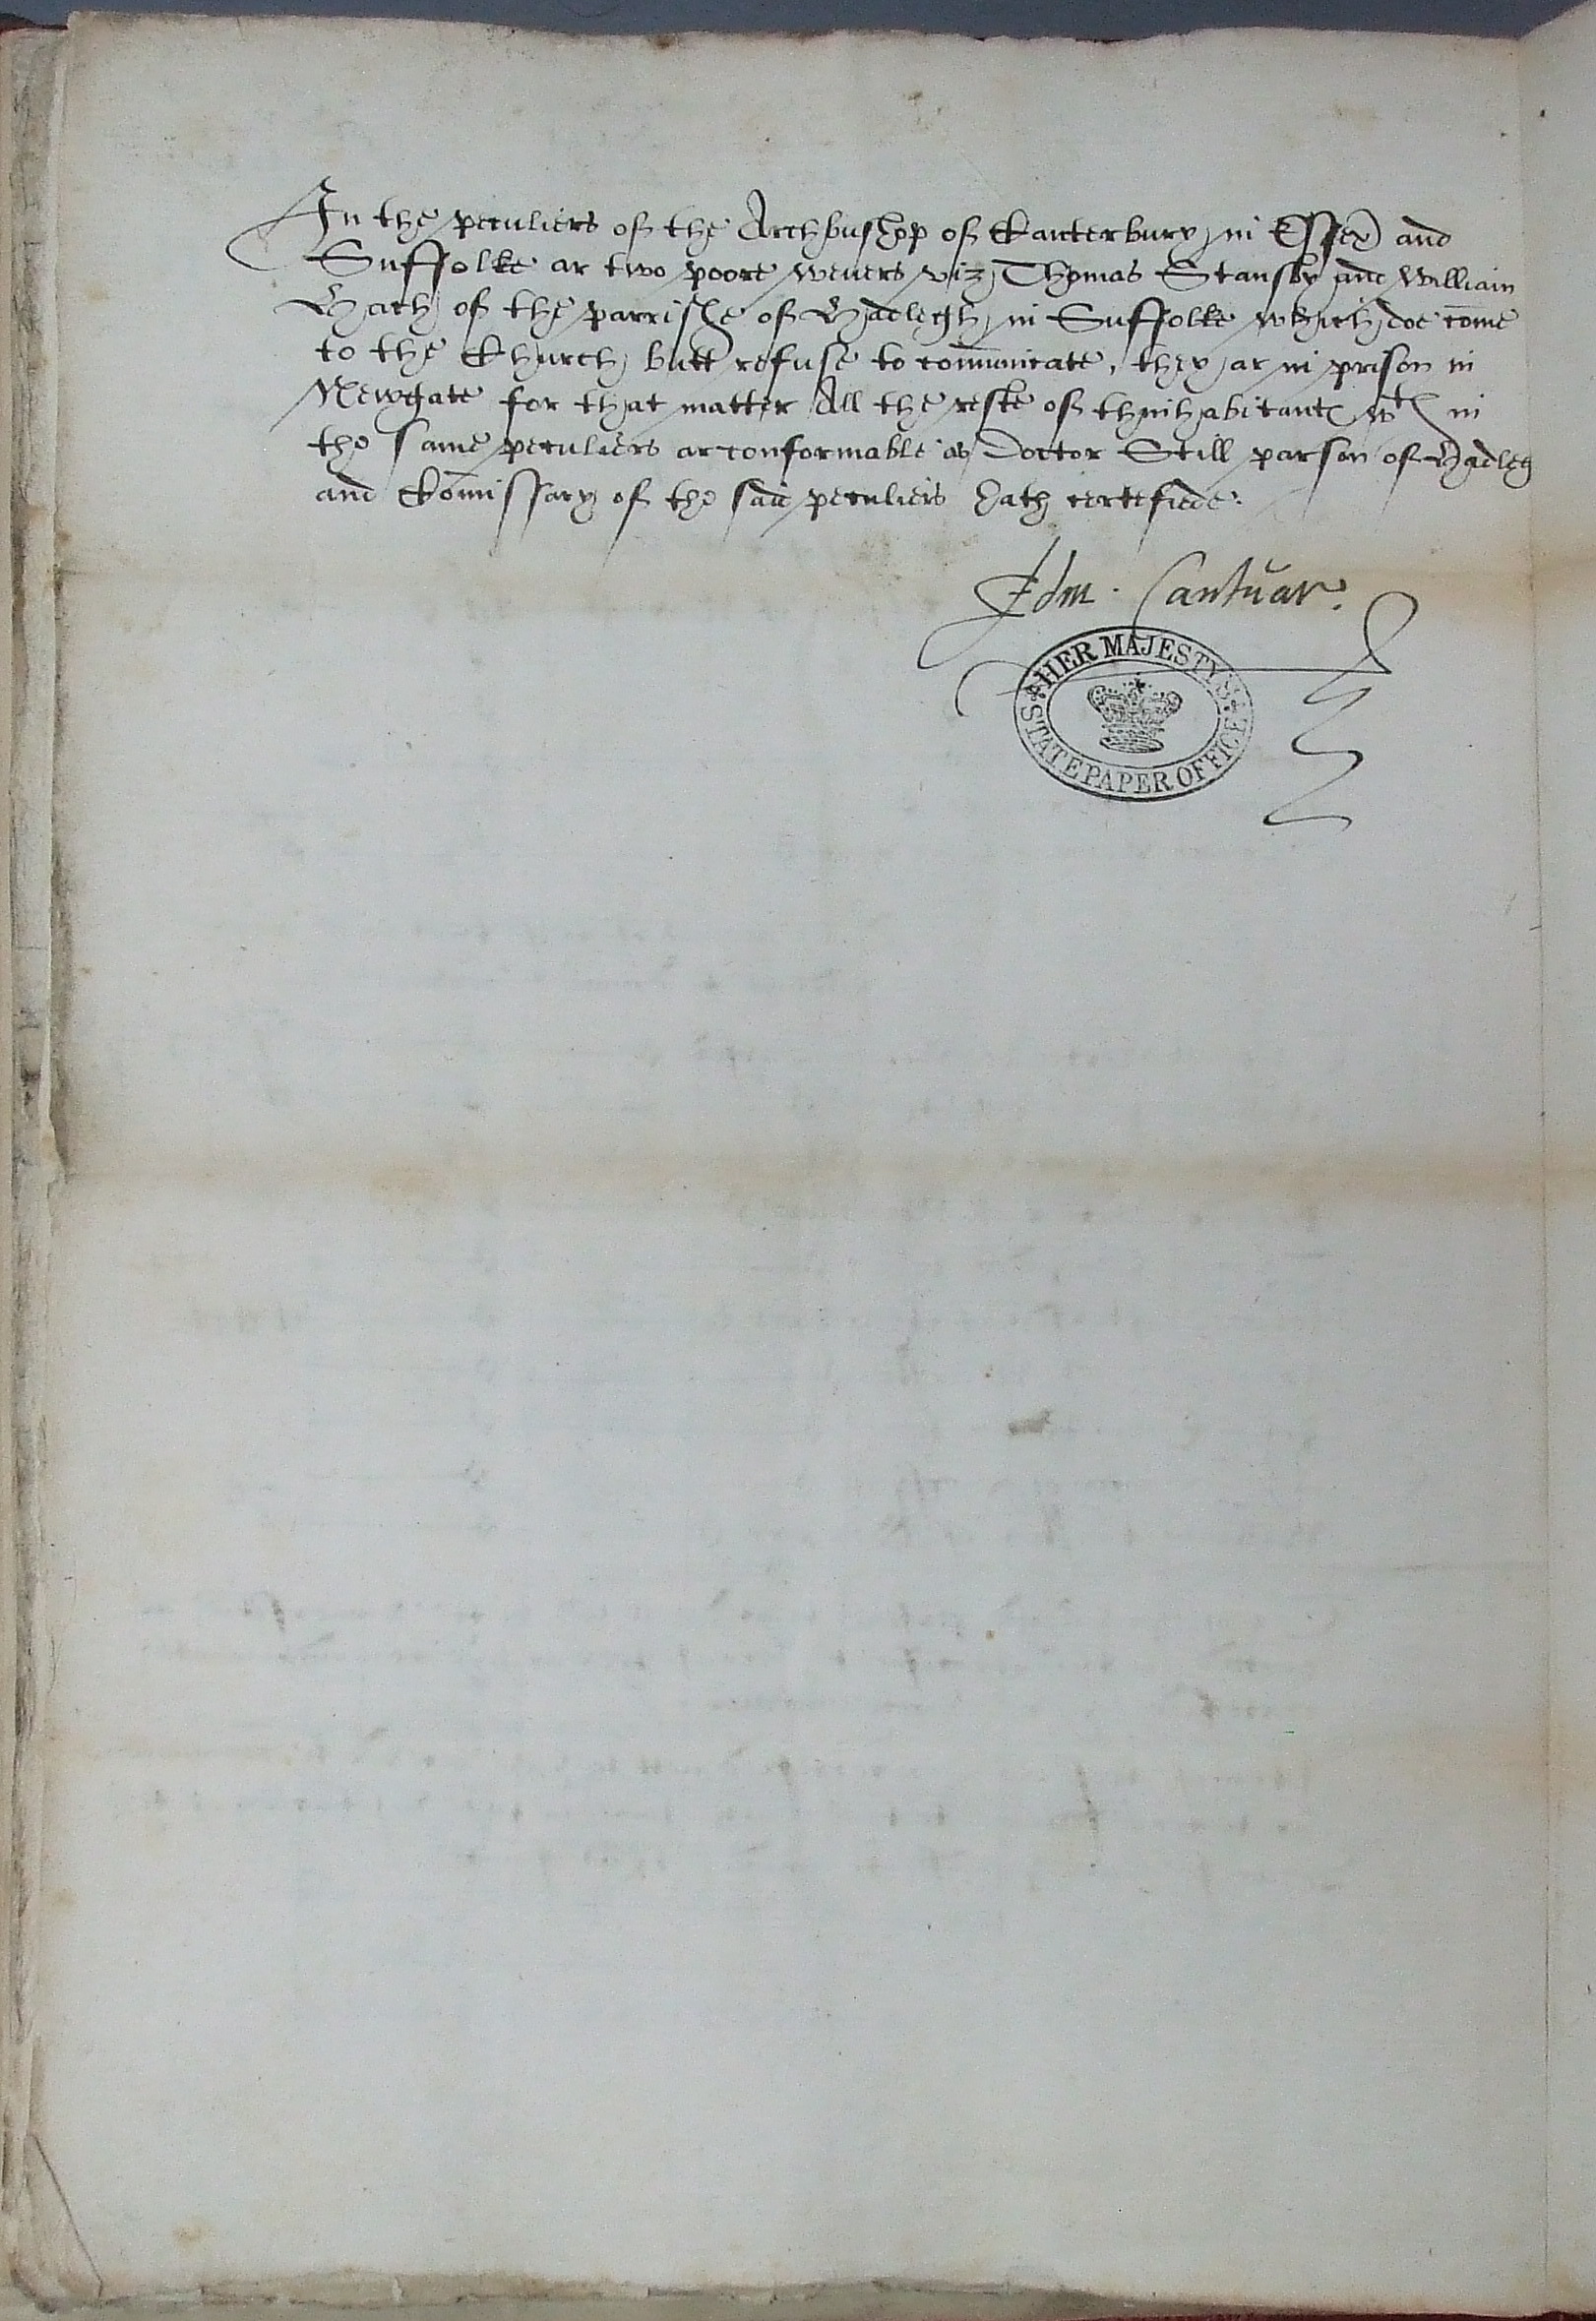 In the peculiers of the Archbusshop of Canterbury in Essex and
Suffolke ar two poore wevers viz Thomas Stansby and William
Hach of the parrishe of Hadlegh in Suffolke which doe come
to the Church butt refuse to comunicate, they ar in prison in
Newgate for that matter All the reste of thinhabitantes wth in
the same peculiers ar conformable as Doctor Still parson of Hadleg
and Comissary of the said peculiers hath certefiede:
Edm. Cantuar.
HER MAJESTY'S
STATE PAPER OFFICE